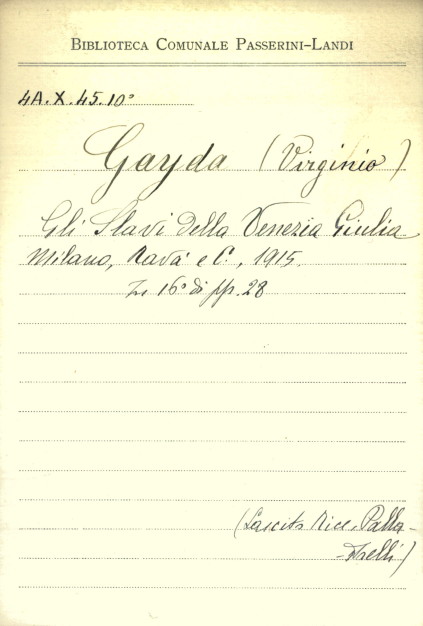 BIBLIOTECA COMUNALE PASSERINI-LANDI
4A.X.45.10°
Gayda (Virginio)
Gli Slavi della Venezia Giulia
Milano, Ravà e C., 1915.
In 16° di pp. 28
(Lascito Picc. Palla-
-strelli)